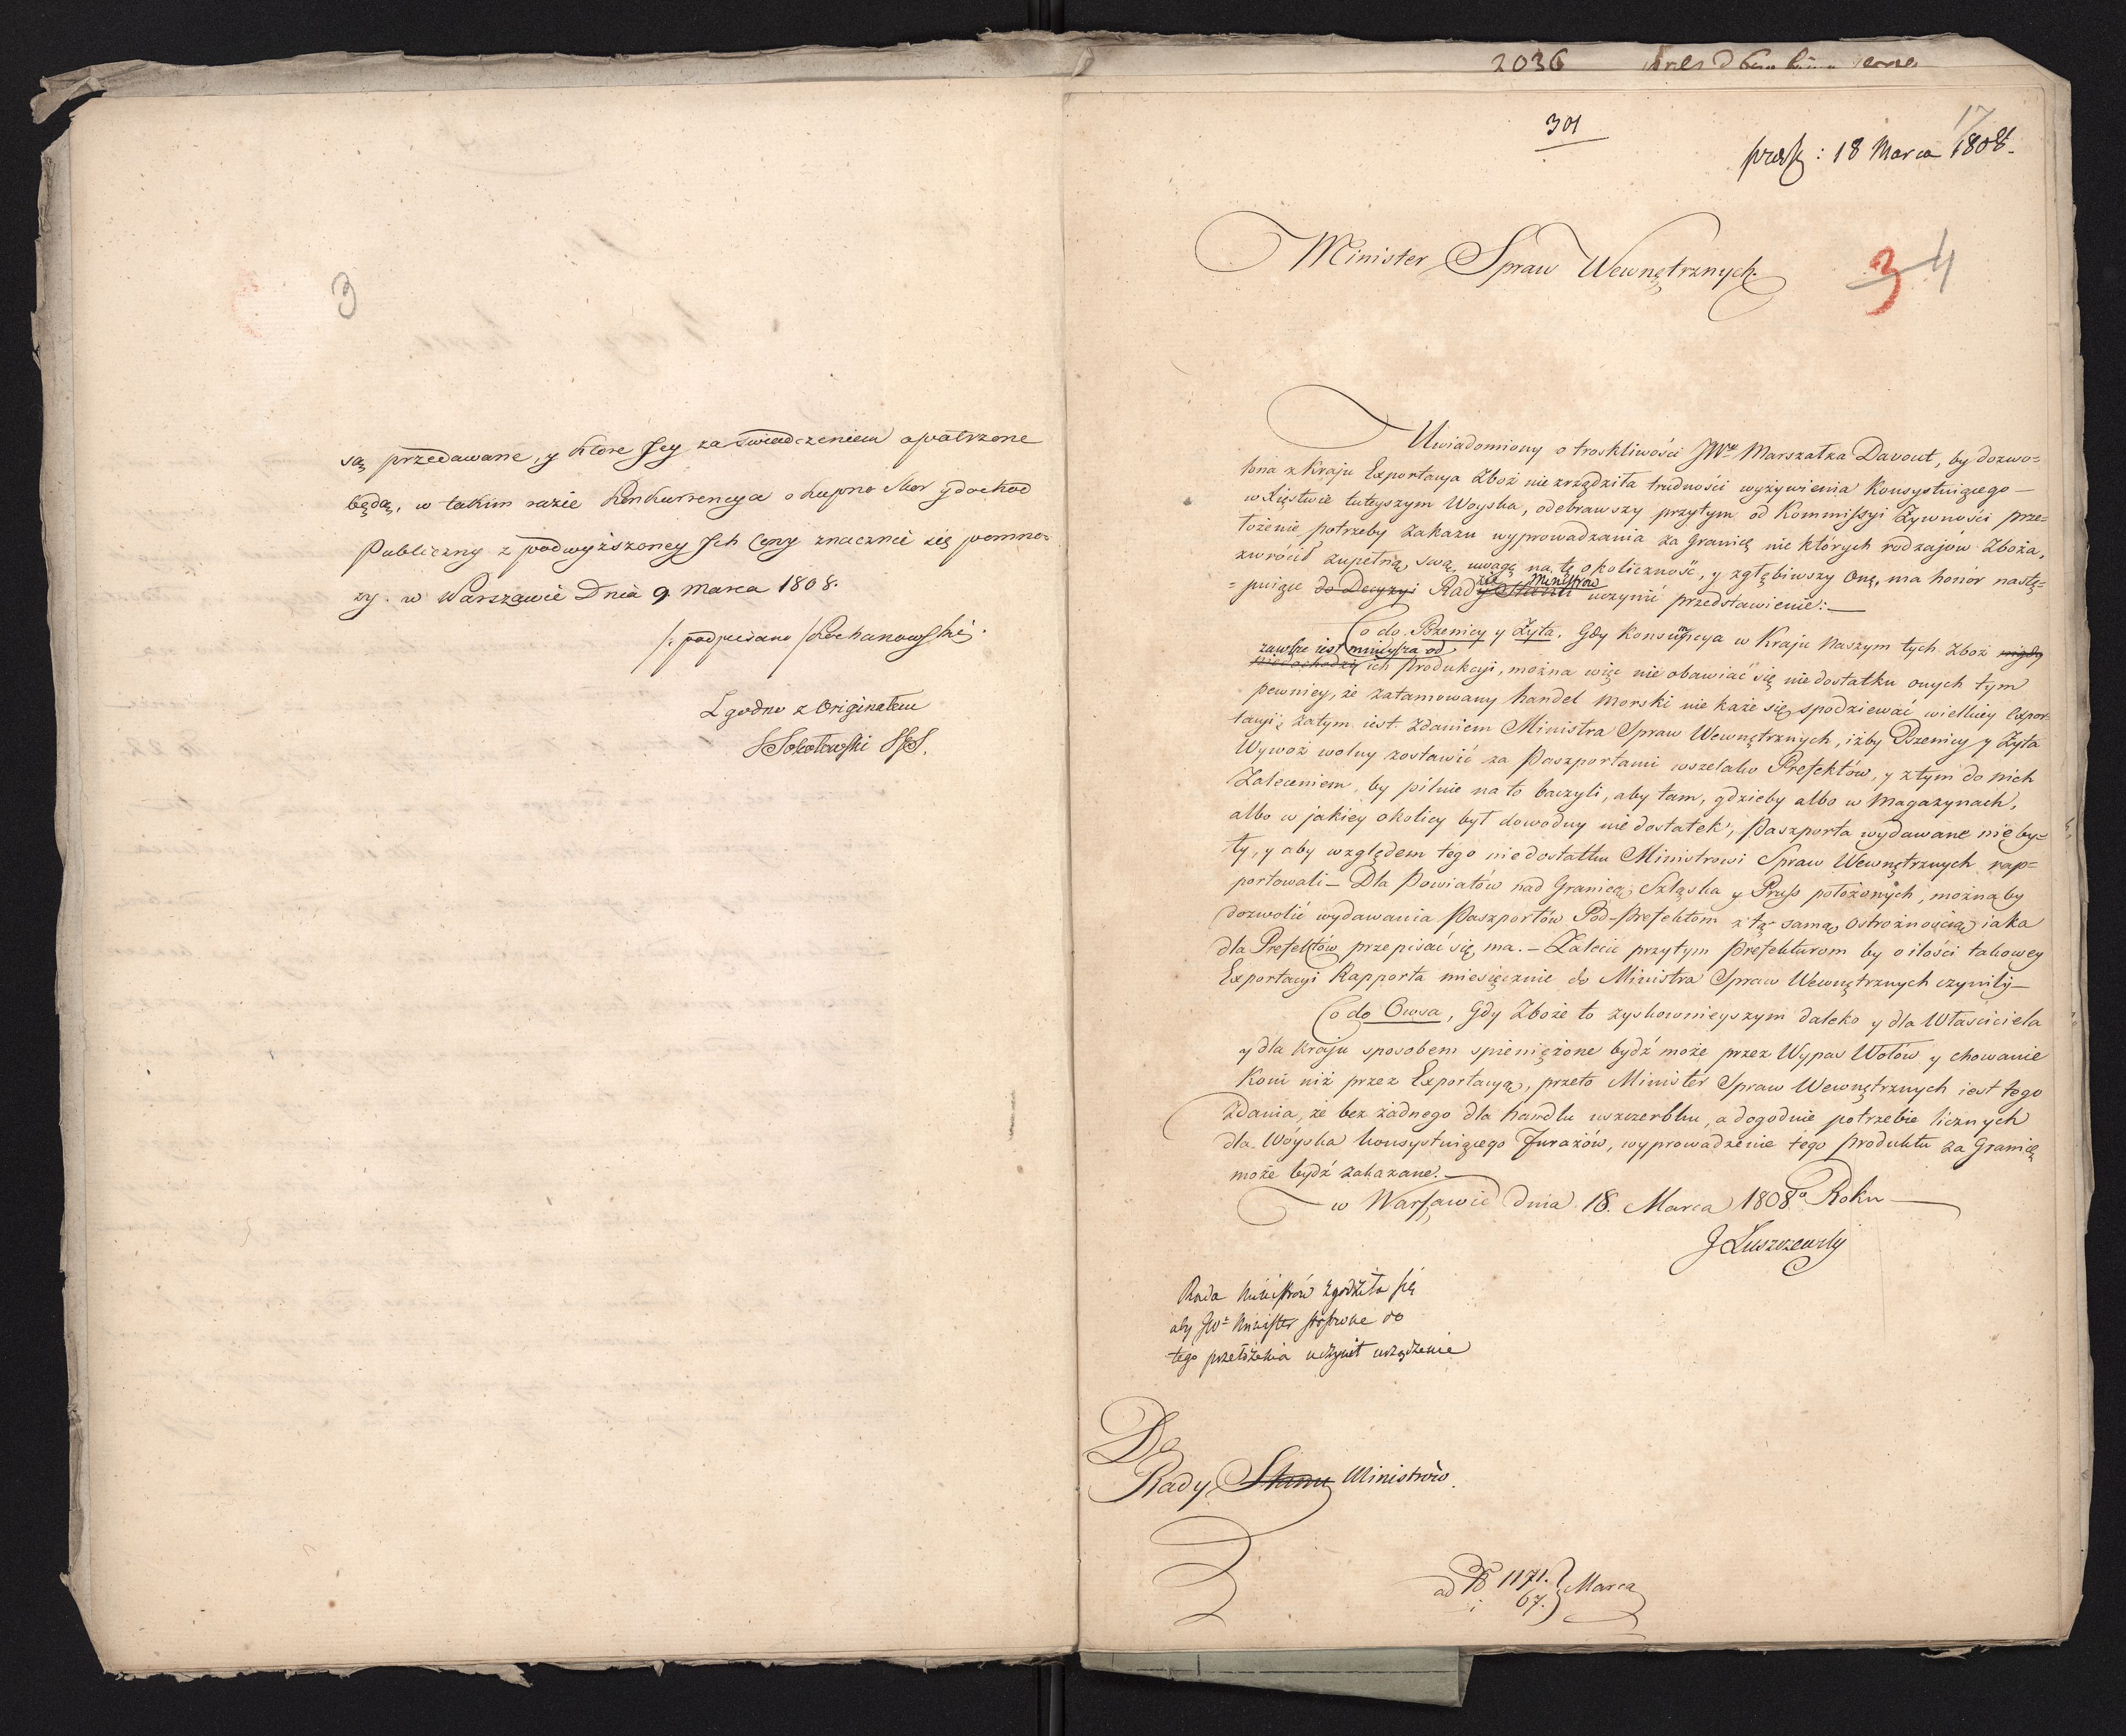 3
są przedawane, y ktore Jey zaświadczeniem opatrzone
będą, w takim razie Konkurrencya o kupno Skor y dochod
Publiczny z podwyższoney Jch Ceny znacznie się pomno=
ży. w Warszawie Dnia 9 Marca 1808.
/: podpisano / Kochanowski.
Zgodno z Originałem
Sokołowski
2036
301
17
prasß: 18 Marca 1808.
Minister Spraw Wewnętrznych
3 4
Uwiadomiony o troskliwości JWo Marszałka Davout, by dozwo=
lona z Kraju Exportacya Zboż nie zrządziła trudności wyżywienia Konsystuiącego
w Xięstwie tuteyszym Woyska, odebrawszy przytym od Kommissyi Żywności prze=
łożenie potrzeby zakazu wyprowadzania za Granicę nie których rodzajów Zboża,
zwrócił zupełną swą uwagę na tę okoliczność, y zgłębiwszy onę, ma honór nastę=
zie Ministrow
= puiące do Decyzyi Rady Stanu uczynić przedstawienie:
Co do Pszenicy y Żyta. Gdy Konsumpcya w Kraju Naszym tych Zboż nigdy
zawsze iest mnieysza od
niedochodzi ich Produkcyi, można więc nie obawiać się niedostatku onych tym
pewniey, że zatamowany handel morski nie każe się spodziewać wielkiey Expor
tacyi, zatym iest zdaniem Ministra Spraw Wewnętrznych, iżby Pszenicy y Żyta
Wywoz wolny zostawić za Paszportami wszelako Prefektów, y z tym do nich
Zaleceniem, by pilnie na to baczyli, aby tam, gdzieby albo w Magazynach,
albo w jakiey okolicy był dowodny niedostatek, Paszporta wydawane nie by=
ły, y aby względem tego niedostatku Ministrowi Spraw Wewnętrznych rap=
portowali – Dla Powiatów nad Granicą Szląska y Pruss położonych, możnaby
dozwolić wydawania Paszportów Pod-Prefektom z tą samą ostrożnością iaka
dla Prefektów przepisać się ma. – Zalecić przytym Prefekturom by o ilości takowey
Exportacyi Rapporta miesięcznie do Ministra Spraw Wewnętrznych czyniły –
Co do Owsa, Gdy Zboże to zyskownieyszym daleko y dla Właściciela
y dla Kraju sposobem spieniężone bydź może przez Wypas Wołów y chowanie
Koni niż przez Exportacyą, przeto Minister Spraw Wewnętrznych iest tego
Zdania, że bez żadnego dla handlu uszczerbku, a dogodnie potrzebie licznych
dla Woyska konsystuiącego Furażów, wyprowadzenie tego produktu za Granicę
może bydź zakazane. –
w Warszawie Dnia 18. Marca 1808o Roku
J Łuszczewski
Rada Ministrów zgodziła się
aby JWy Minister stosowne do
tego przełożenia uczynił urządzenie
Do
Rady Stanu Ministrów.
ad No 1171. Marca
67.